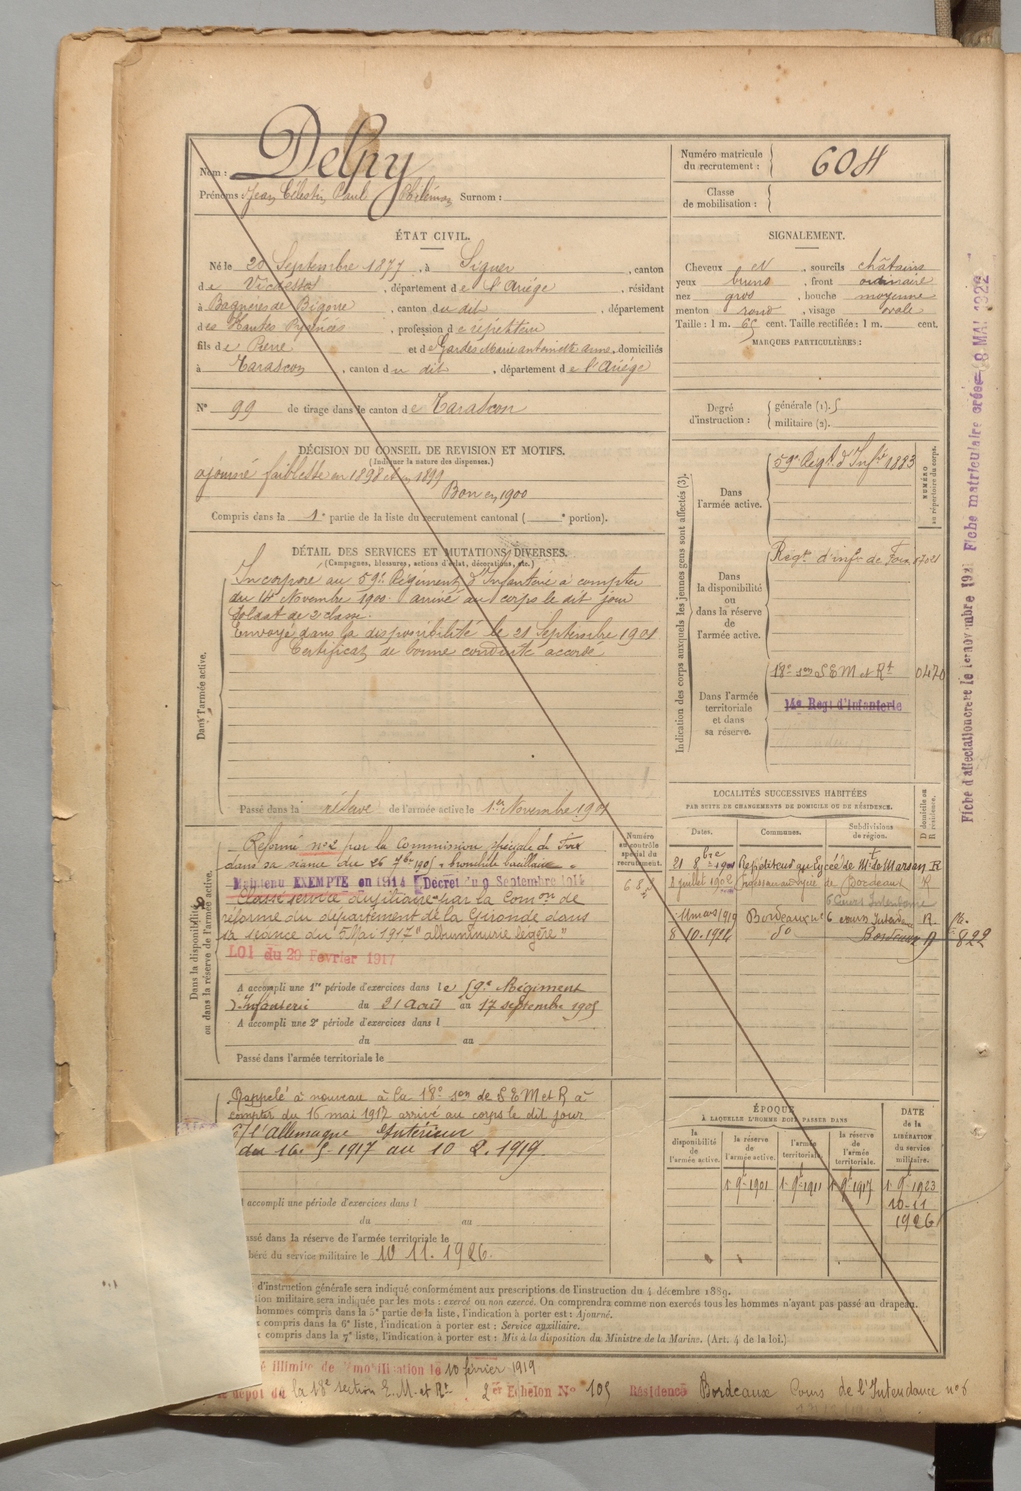 Nom : Delpy
Prénoms : Jean Célestin Paul Philémon Surnom :
Numéro matricule du recrutement : 604
Classe de mobilisation :
ÉTAT CIVIL.
Né le 20 Septembre 1877, à Siguer, canton
de Vicdessos, département de l'Ariège, résidant
à Bagnères de Bigorre, canton du dit, département
des Hautes Pyrénées, profession de répétiteur
fils de Pierre et de Gardes Marie antoinette anne, domiciliés
à Tarascon, canton du dit, département de l'Ariège
N° 99 de tirage dans le canton de Tarascon
SIGNALEMENT.
Cheveux et, sourcils châtains
yeux bruns, front ordinaire
nez gros, bouche moyenne
menton rond, visage ovale
Taille : 1 m. 65 cent. Taille rectifiée : 1 m. cent.
MARQUES PARTICULIÈRES :
Degré d'instruction : générale (1). 5
militaire (2).
DÉCISION DU CONSEIL DE REVISION ET MOTIFS.
(Indiquer la nature des dispenses.)
ajourné faiblesse en 1898 et en 1899
Bon en 1900
Compris dans la 1e partie de la liste du recrutement cantonal ( e portion).
DÉTAIL DES SERVICES ET MUTATIONS DIVERSES.
(Campagnes, blessures, actions d'éclat, décorations, etc.)
Dans l'armée active.
Incorporé au 59e Régiment d'Infanterie à compter
du 14 Novembre 1900. arrivé au corps le dit jour
soldat de 2e classe.
Envoyé dans la disponibilité le 21 Septembre 1901
Certificat de bonne conduite accordé
Passé dans la réserve de l'armée active le 1er Novembre 1901
Indication des corps auxquels les jeunes gens sont affectés (3).
NUMÉRO au répertoire du corps.
Dans l'armée active.
59e Régt d'Infie 1883
Dans la disponibilité ou dans la réserve de l'armée active.
Régt d'infie de Foix 07021
Dans l'armée territoriale et dans sa réserve.
18e son S E M et Rt 0470
14e Regt d'Infanterie
LOCALITÉS SUCCESSIVES HABITÉES
PAR SUITE DE CHANGEMENTS DE DOMICILE OU DE RÉSIDENCE.
Dates. Communes. Subdivisions de région. D domicile ou R résidence.
21 8bre 1901 Répétiteur au Lycée de Mt de Marsan R
2 juillet 1902 Professeur au Lycée de Bordeaux R
6 Cours Intendance
11 mars 1919 Bordeaux 6 cours Intend. R
8/10.1924 do Bordeaux D 822
Dans la disponibilité ou dans la réserve de l'armée active.
Numéro au contrôle spécial du recrutement.
Réformé no 2 par la Commission spéciale de Foix
dans sa séance du 26 7bre 1905
Maintenu EXEMPTÉ en 1914 Décret du 9 Septembre 1914
Classé service Auxiliaire par la Comon de
réforme du département de la Gironde dans
sa séance du 5 Mai 1917 "albuminurie légère"
LOI du 20 Février 1917
A accompli une 1re période d'exercices dans le 59e Régiment
d'Infanterie du 21 Août au 17 septembre 1905
A accompli une 2e période d'exercices dans l
du au
Passé dans l'armée territoriale le
Rappelé à nouveau à la 18e son de S E M et R, à
compter du 16 mai 1917 arrivé au corps le dit jour
C/ l'Allemagne Intérieur
du 16. 5. 1917 au 10 2. 1919
accompli une période d'exercices dans l
du au
assé dans la réserve de l'armée territoriale le
béré du service militaire le 10 11. 1926.
ÉPOQUE
À LAQUELLE L'HOMME DOIT PASSER DANS
la disponibilité de l'armée active.
la réserve de l'armée active.
l'armée territoriale.
la réserve de l'armée territoriale.
DATE de la LIBÉRATION du service militaire.
1 9b 1901 1 9b 1911 1 9b 1917 1 9b 1923
10-11
1926
d'instruction générale sera indiqué conformément aux prescriptions de l'instruction du 4 décembre 1889.
tion militaire sera indiquée par les mots : exercé ou non exercé. On comprendra comme non exercés tous les hommes n'ayant pas passé au drapeau.
hommes compris dans la 5e partie de la liste, l'indication à porter est : Ajourné.
x compris dans la 6e liste, l'indication à porter est : Service auxiliaire.
x compris dans la 7e liste, l'indication à porter est : Mis à la disposition du Ministre de la Marine. (Art. 4 de la loi.)
é illimité de démobilisation le 10 février 1919
dépôt de la 18e section E. M. et Rt 2er Echelon No 105 Résidence Bordeaux Cours de l'Intendance no 6
Fiche matriculaire créée 8 MAI 1922